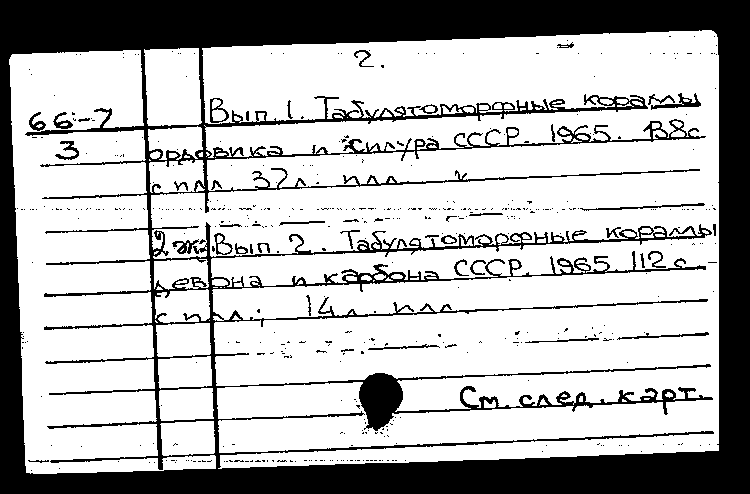 2.
66-7 Вып. 1. Табулятоморфные кораллы
3 ордовика и силура СССР. 1965. 138с
с илл. 37л. илл.
2 экз Вып. 2. Табулятоморфные кораллы
девона и карбона СССР. 1965. 112 с
с илл.; 14 л. илл.
См. след. карт.